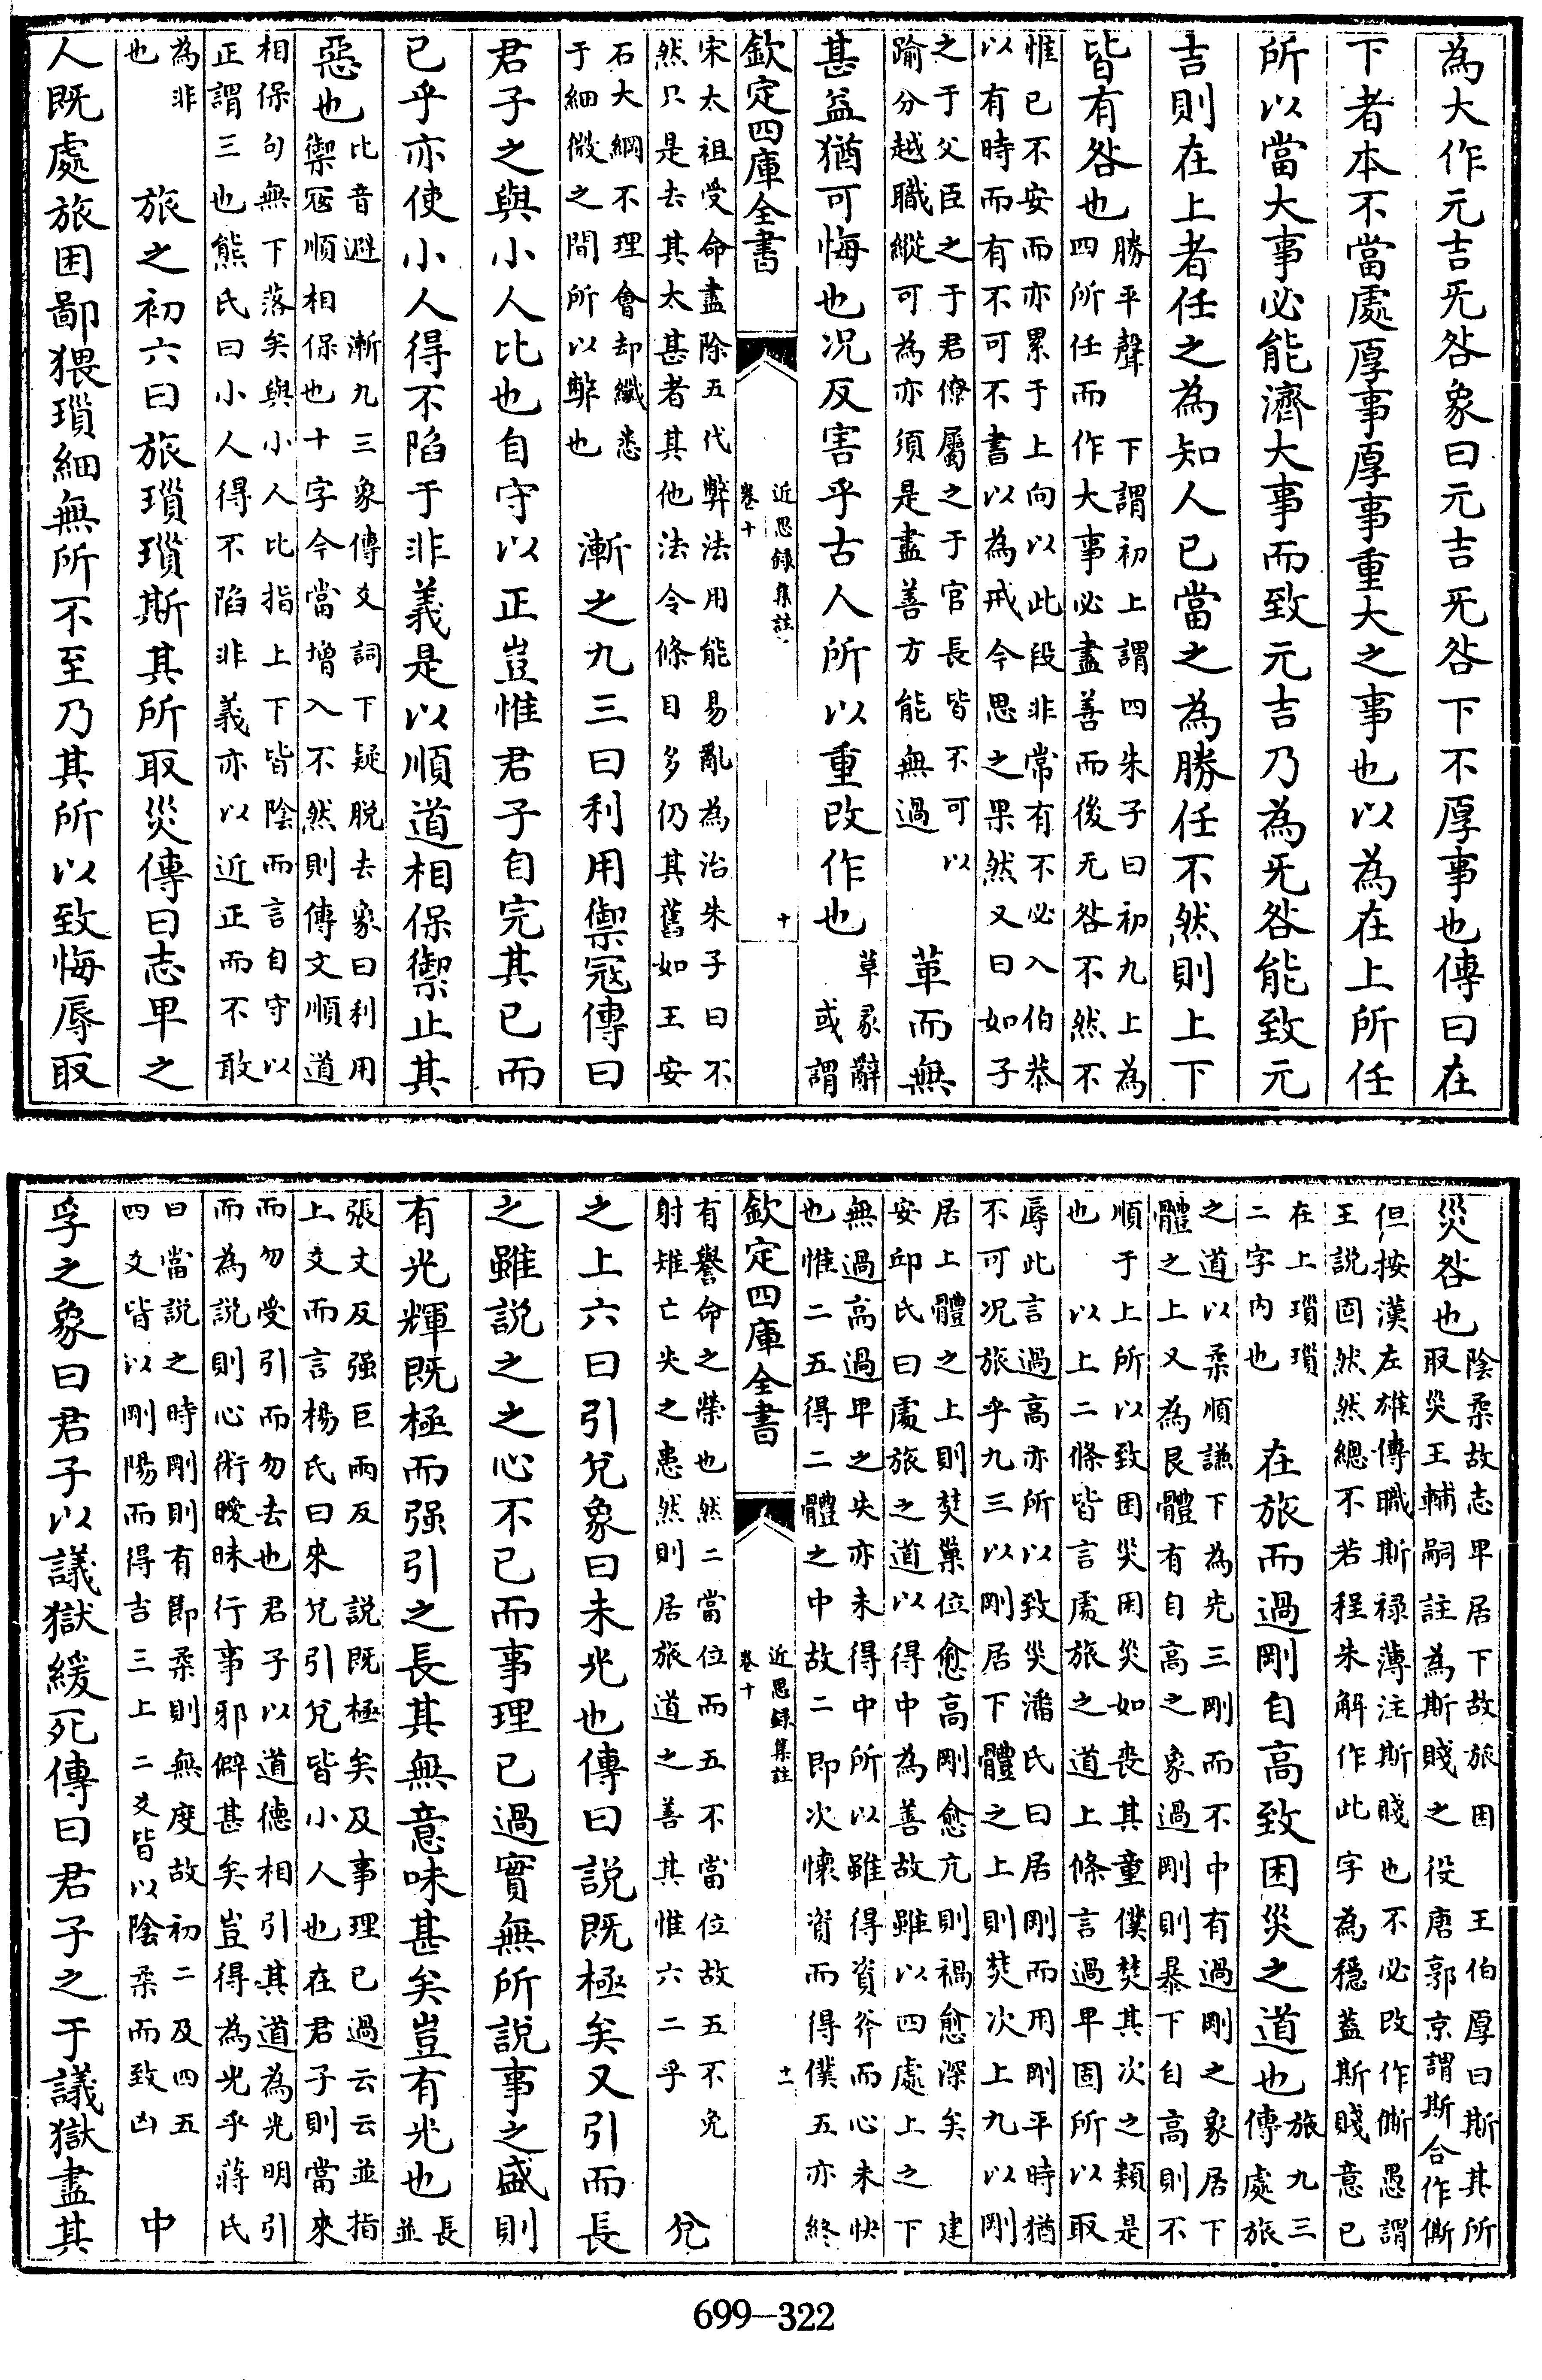 為大作元吉旡咎象曰元吉旡咎下不厚事也傳曰在
下者本不當處厚事厚事重大之事也以為在上所任
所以當大事必能濟大事而致元吉乃為旡咎能致元
吉則在上者任之為知人已當之為勝任不然則上下
皆有咎也勝平聲 下謂初上謂四朱子曰初九上為
四所任而作大事必盡善而後无咎不然不
惟已不安而亦累于上向以此段非常有不必入伯恭
以有時而有不可不書以為戒今思之果然又曰如子
之于父臣之于君僚屬之于官長皆不可以
踰分越職縱可為亦須是盡善方能無過
革而無
甚益猶可悔也况反害乎古人所以重改作也革彖辭
或謂
欽定四庫全書
近思録集註
卷十
十
宋太祖受命盡除五代弊法用能易亂為治朱子曰不
然只是去其太甚者其他法令條目多仍其舊如王安
石大綱不理會却纖悉
于細微之間所以弊也
漸之九三曰利用禦冦傳曰
君子之與小人比也自守以正豈惟君子自完其已而
已乎亦使小人得不陷于非義是以順道相保禦止其
惡也比音避 漸九三象傳爻詞下疑脱去象曰利用
禦冦順相保也十字今當增入不然則傳文順道
相保句無下落矣與小人比指上下皆陰而言自守以
正謂三也熊氏曰小人得不陷非義亦以近正而不敢
為非
也
旅之初六曰旅瑣瑣斯其所取災傳曰志卑之
人既處旅困鄙猥瑣細無所不至乃其所以致悔辱取
災咎也陰柔故志卑居下故旅困
取災王輔嗣註為斯賤之役
王伯厚曰斯其所
唐郭京謂斯合作㒋
但按漢左雄傳職斯禄薄注斯賤也不必改作㒋愚謂
王説固然然總不若程朱解作此字為穩蓋斯賤意已
在上瑣瑣
二字内也
在旅而過剛自高致困災之道也旅九三
傳處旅
之道以柔順謙下為先三剛而不中有過剛之象居下
體之上又為艮體有自高之象過剛則暴下自高則不
順于上所以致困災困災如丧其童僕焚其次之類是
也 以上二條皆言處旅之道上條言過卑固所以取
辱此言過高亦所以致災潘氏曰居剛而用剛平時猶
不可况旅乎九三以剛居下體之上則焚次上九以剛
居上體之上則焚巢位愈高剛愈亢則禍愈深矣 建
安邱氏曰處旅之道以得中為善故雖以四處上之下
無過高過卑之失亦未得中所以雖得資斧而心未快
也惟二五得二體之中故二即次懷資而得僕五亦終
欽定四庫全書
近思録集註
卷十
十一
有譽命之榮也然二當位而五不當位故五不免
射雉亡矢之患然則居旅道之善其惟六二乎
兌
之上六曰引兌象曰未光也傳曰説既極矣又引而長
之雖説之之心不已而事理已過實無所説事之盛則
有光輝既極而强引之長其無意味甚矣豈有光也長
並
張丈反强巨兩反 説既極矣及事理已過云云並指
上爻而言楊氏曰來兌引兌皆小人也在君子則當來
而勿受引而勿去也君子以道德相引其道為光明引
而為説則心術曖昧行事邪僻甚矣豈得為光乎蔣氏
曰當説之時剛則有節柔則無度故初二及四五
四爻皆以剛陽而得吉三上二爻皆以陰柔而致凶
中
孚之象曰君子以議獄緩死傳曰君子之于議獄盡其
699-322